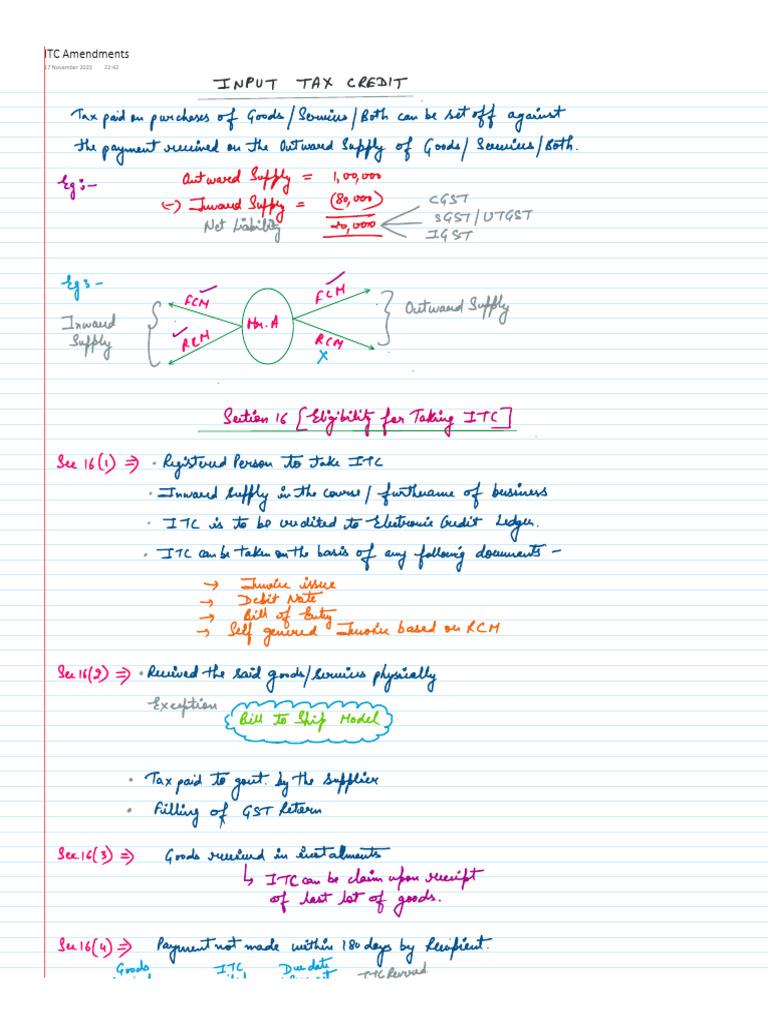 ITC Amendments
17 November 2023 22:42
INPUT TAX CREDIT
Tax paid on purchases of Goods/Services/Both can be set off against
the payment received on the Outward Supply of Goods/Services/Both.
Eg:-
Outward Supply = 1,00,000
(-) Inward Supply = (80,000)
Net Liability 20,000
CGST
SGST/UTGST
IGST
Eg:-
Inward Supply
FCM
RCM
Mr. A
FCM
RCM
X
Outward Supply
Section 16 [Eligibility for Taking ITC]
Sec 16(1) ⇒ • Registered Person to take ITC
• Inward supply in the course/furtherance of business
• ITC is to be credited to Electronic Credit Ledger.
• ITC can be taken on the basis of any following documents -
→ Invoice issue
→ Debit Note
→ Bill of Entry
→ Self genered Invoice based on RCM
Sec 16(2) ⇒ • Received the said goods/services physically
Exception
Bill to Ship Model
• Tax paid to govt. by the supplier
• Filling of GST Return
Sec 16(3) ⇒ Goods received in instalments
↳ ITC can be claim upon receipt
of last lot of goods.
Sec 16(4) ⇒ Payment not made within 180 days by Recipient.
Goods ITC Due date ITC Reversed